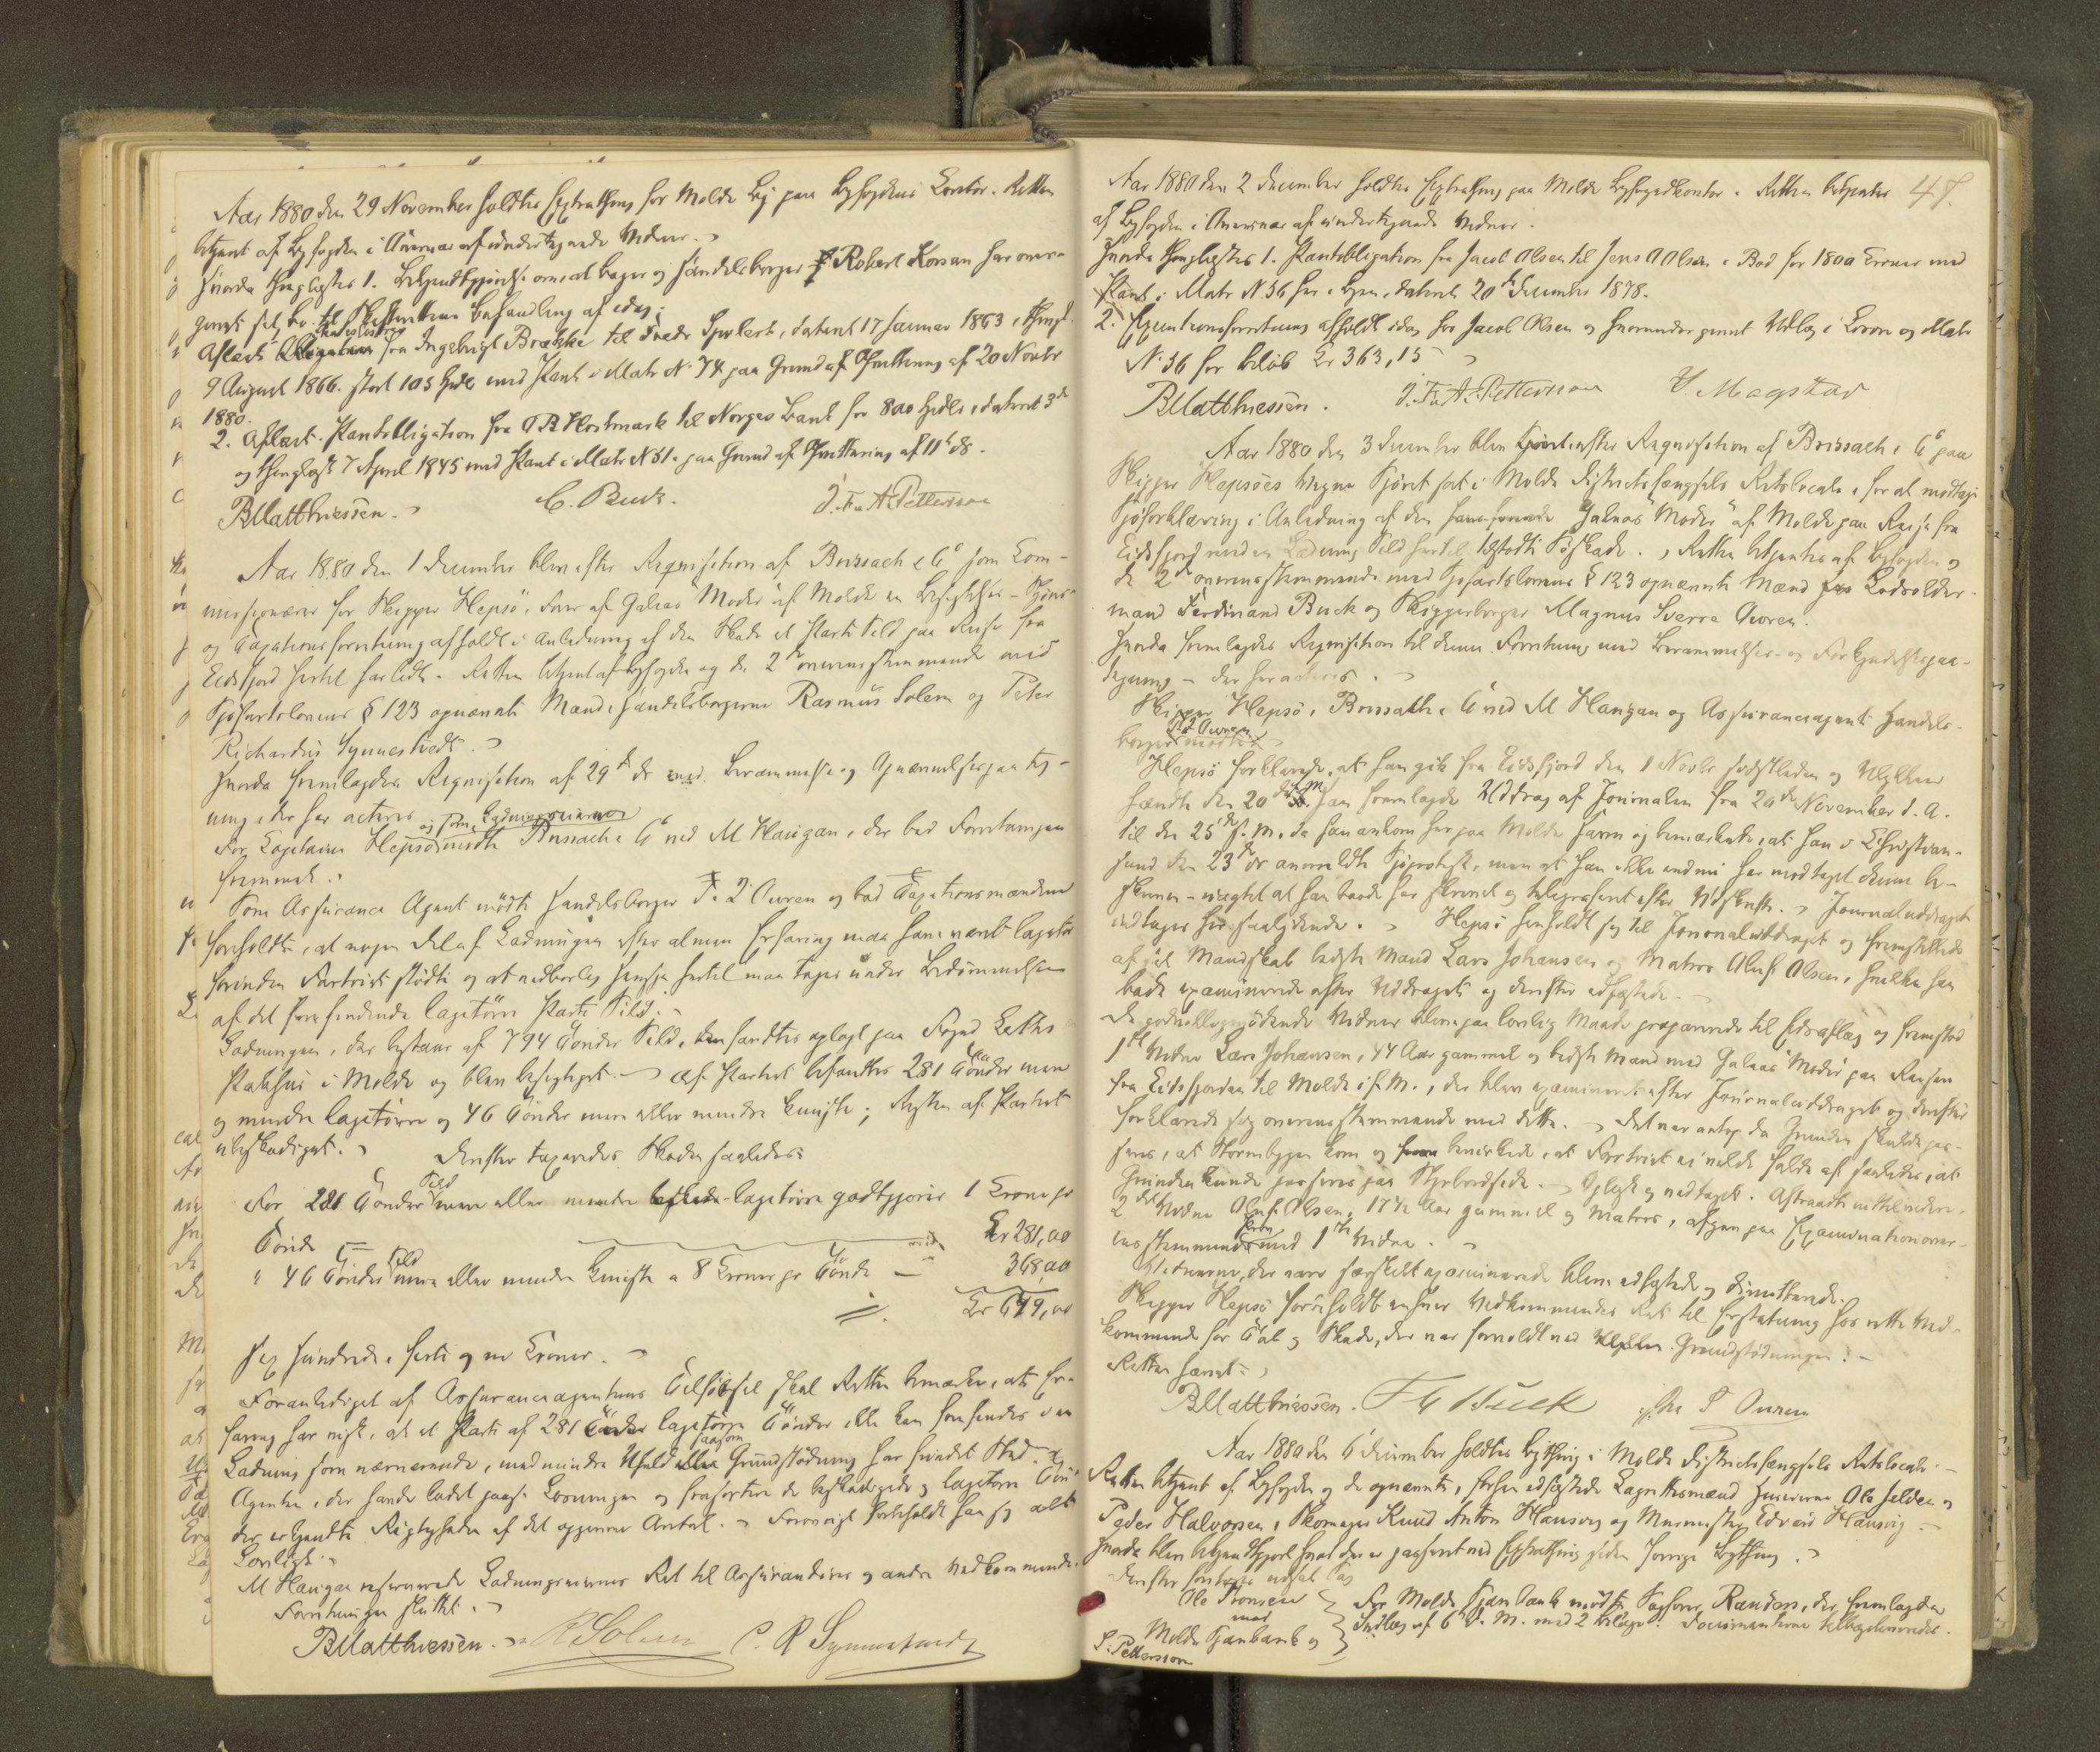 Aar 1880 den 29 November holdtes Extrathing for Molde By paa Byfogdens Contor. Retten
betjent af Byfogden i Overvær af undertegnede Vidner.
Hvorda thinglæstes 1. Bekjendtgjørelse om at bager og Handelsborger Robert Korsan har over-
givet sit bo til Skifterettens Behandling af idag.
Aflæst Obligation fra Ingebrigt Brække til Fredr Spolert, dateret 17 Januar 1863, thingl.
9 August 1866. stort 105 Spdlr med Pant i Matr N. 74 paa Grund af Qvittering af 20 Novbr
1880.
2. Aflæst Pantobligation fra O B Hostmark til Norges Bank for 800 Spdlr, dateret 3de
og thinglæst 7 April 1845 med Pant i Matr N 51. paa Grund af Qvittering af 11 ds.
BMatthiessen. C. Buck. J. Fr. A. Pettersson
Aar 1880 den 1 December blev efter Requisition af Brissach & Co som Com-
missionærer for Skipper Hepsö, Fører af Galeas "Moder" af Molde en Besigtelses- Skjøns-
og Taxationsforretning afholdt i Anledning af den Skade et Parti Sild paa Reise fra
Eidsfjord hertil har lidt. Retten betjent af Byfogden og de 2de overensstemmende med
Sjøfartslovens § 123 opnævnte Mænd, Handelsborgerne Rasmus Solem og Peter
Richardus Synnestvedt.
Hvorda fremlagdes Requisition af 29de ds med Berammelse og Opnævnelsespaateg-
ning der her acteres og som Ladningseiernes
For Capitain Hepsö mødte Brissach & Co ved M Haugan, der bad Forretningen
fremmet.
Som Assurance Agent mødte Handelsborger F. Z Owren og bad Taxationsmændene
foreholdt, at nogen Del af Ladningen efter almen Erfaring maa have været lagetør
forinden Fartøiet stødte og at nødvendig Hensyn hertil maa tages under Bedømmelsen
af det forefindende lagetørre Parti Sild.
Ladningen, der bestaar af 794 Tønder Sild, fandtes oplagt paa Foged Leths
Pakhus i Molde og blev besigtiget. Af Partiet befandtes 281 Tønder mere
og mindre lagetørre og 46 Tønder mere eller mindre knuste; Resten af Partiet
ubeskadiget. Derefter taxeredes Skaden saaledes:
For 281 Tønder Sild mere eller mindre lagetørre godtgjøres 1 Krone pr
Tønde Kr 281,00
" 46 Tønder Sild mere eller mindre knuste a 8 Kroner pr Tønde — 368,00
Kr 649,00
Sex hundrede, firti og ni Kroner.
Foranlediget af Assuranceagentens Tilførsel skal Retten bemærke, at Er-
faring har vist, at et Parti af 281 lagetørre Tønder ikke kan forefindes i en
Ladning som nærværende, medmindre Uheld saasom Grundstødning har fundet Sted.
Agenten, der havde ladet passe Losningen og frasortere de beskadigede og lagetørre Tøn-
der erkjendte Rigtigheden af det opgivne Antal. Forøvrigt forbeholdt han sig alt
Lovligt.
M Haugan reserverede Ladningseiernes Ret til Assurandører og andre Vedkommende.
Forretningen sluttet.
BMatthiessen. R Solem P. R Synnestvedt
47.
Aar 1880 den 2 December holdtes Extrathing paa Molde Byfogedkontor. Retten betjentes
af Byfogden i Overvær af undertegnede Vidner.
Hvorda thinglæstes 1. Pantobligation fra Jacob Olsen til Jens A Olsen i Bod for 1800 Kroner med
Pant i Matr N. 36 her i Byen, dateret 20de December 1878.
2. Executionsforretning afholdt idag hos Jacob Olsen og hvorunder gjort Udlæg i Løsøre og Matr
N. 36 for Beløb Kr 363,15
BMatthiessen. J. Fr. A. Pettersson V. Magstad
Aar 1880 den 3 December blev efter Requisition af Brissach & Co paa
Skipper Hepsöes Vegne Sjøret sat i Molde Distriktsfængsels Retslocale, for at modtage
Sjøforklaring i Anledning af den Galeas "Moder" af Molde paa Reise fra
Eidsfjord med en Ladning Sild hertil tilstødte Søskade. Retten betjentes af Byfogden og
de 2de overensstemmende med Sjøfartslovens § 123 opnævnte Mænd Lodsolder-
mand Ferdinand Buck og Skipperborger Magnus Sverre Owren.
Hvorda fremlagdes Requisition til denne Forretning med Berammelses- og Forkyndelsespaa-
tegning – der her acteres.
Skipper Hepsö, Brissach & Co ved M Haugan og Assuranceagent Handels-
borger F Z Owren mødte
Hepsö forklarede, at han gik fra Eidsfjord den 1 Novbr sidstleden og Ulykken
hændte den 20de f. M. Han fremlagde Uddrag af Journalen fra 20de November d. A.
til den 25de f. M. da han ankom her paa Molde Havn og bemærkede, at han i Christian-
sund den 23de ds anmeldte Sjøprotest, men at han ikke endnu har modtaget denne be-
skreven – uagtet at han baade har skrevet og telegraferet efter Udskrift. Journaluddraget
indtages her saalydende. Hepsö henholdt sig til Journaluddraget og fremstillede
af sit Mandskab bedste Mand Lars Johansen og Matros Oluf Olsen, hvilke han
bad examinerede efter Uddraget og derefter edfæstede.
De godvilligmødende Vidner blev paa lovlig Maade præparerede til Edsaflæg og fremstod
1ste Vidne Lars Johansen, 44 Aar gammel og bedste Mand med Galeas "Moder" paa Reisen
fra Eidsfjorden til Molde i f. M., der blev examineret efter Journaluddraget og derefter
forklarede sig overensstemmende med dette. Det var antog da Grunden skulde pas-
seres, at Stormbygen kom og bevirkede, at Fartøiet ei vilde falde af saaledes, at
Grunden kunde passeres paa Styrbordside. Oplæst og vedtaget. Aftraadte indtil videre.
2det Vidne Oluf Olsen, 17½ Aar gammel og Matros, afgav paa Examination over-
ensstemmende Forkl. med 1ste Vidne.
Vidnerne, der vare særskilt examinerede bleve edfæstede og dimitterede.
Skipper Hepsö forbeholdt enhver Vedkommendes Ret til Erstatning hos rette Ved-
kommende for Tab og Skade, der var forvoldt ved Grundstødningen.
Retten hævet.
BMatthiessen. F C Buck M S Owren
Aar 1880 den 6 December holdtes Bything i Molde Distriktsfængsels Retslocale.
Retten betjent af Byfogden og de opnævnte, forhen edfæstede Lagrettesmænd Huseierne Ole Helden og
Peder Halvorsen, Skomager Knud Anton Hausvig og Murmester Edvard Hausvig.
Hvorda blev bekjendtgjort hvad der er passeret ved Extrathing siden forrige Bything.
Derefter foretoges udsat Sag
Ole Tronsen
mod
Molde Sparebank og
S. Pettersson
For Molde Sparebank mødte Sagfører Randers, der fremlagde
Indlæg af 6 d. M. med 2 Bilage. Documenterne tilbageleveredes.